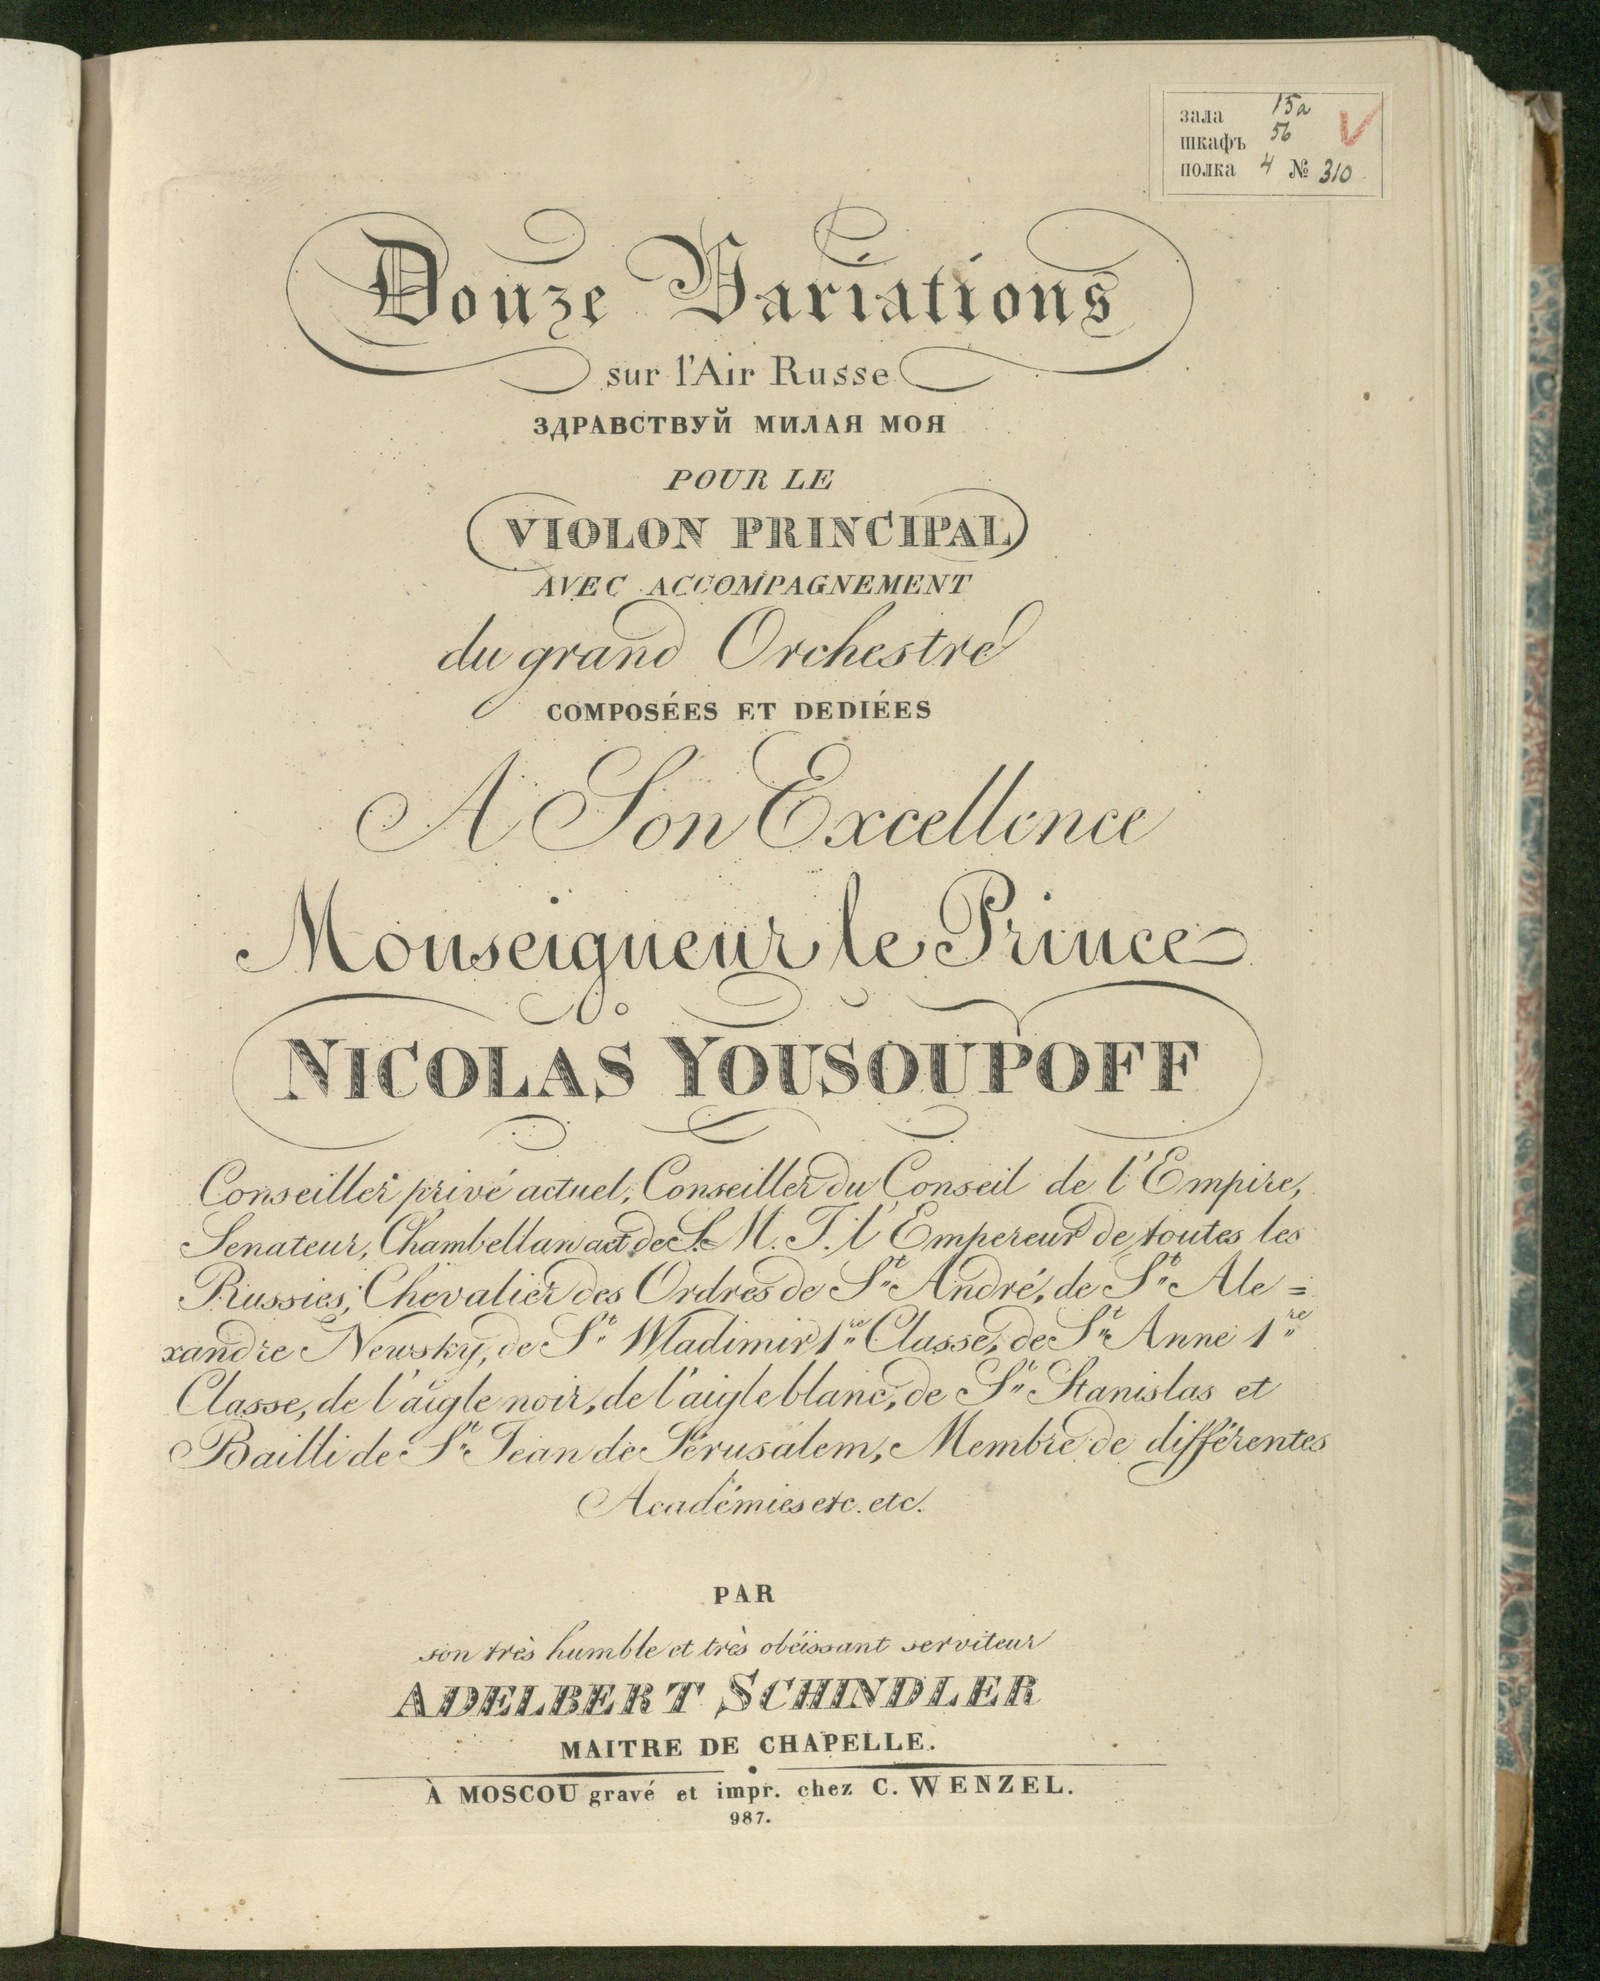 зала 15а
шкафъ 56
полка 4 № 310
Douze Variations
sur l'Air Russe
ЗДРАВСТВУЙ МИЛАЯ МОЯ
POUR LE
VIOLON PRINCIPAL
AVEC ACCOMPAGNEMENT
du grand Orchestre
COMPOSÉES ET DEDIÉES
A Son Excellence
Monseigneur le Prince
NICOLAS YOUSOUPOFF
Conseiller privé actuel, Conseiller du Conseil de l'Empire,
Senateur, Chambellan act. de S. M. I. l'Empereur de toutes les
Russies, Chevalier des Ordres de St. André, de St. Ale=
xandre Newsky, de St. Wladimir 1re Classe, de Ste. Anne 1re
Classe, de l'aigle noir, de l'aigle blanc, de St. Stanislas et
Bailli de St. Jean de Jérusalem, Membre de différentes
Académies etc. etc.
PAR
son très humble et très obéissant serviteur
ADELBERT SCHINDLER
MAITRE DE CHAPELLE.
À MOSCOU gravé et impr. chez C. WENZEL.
987.